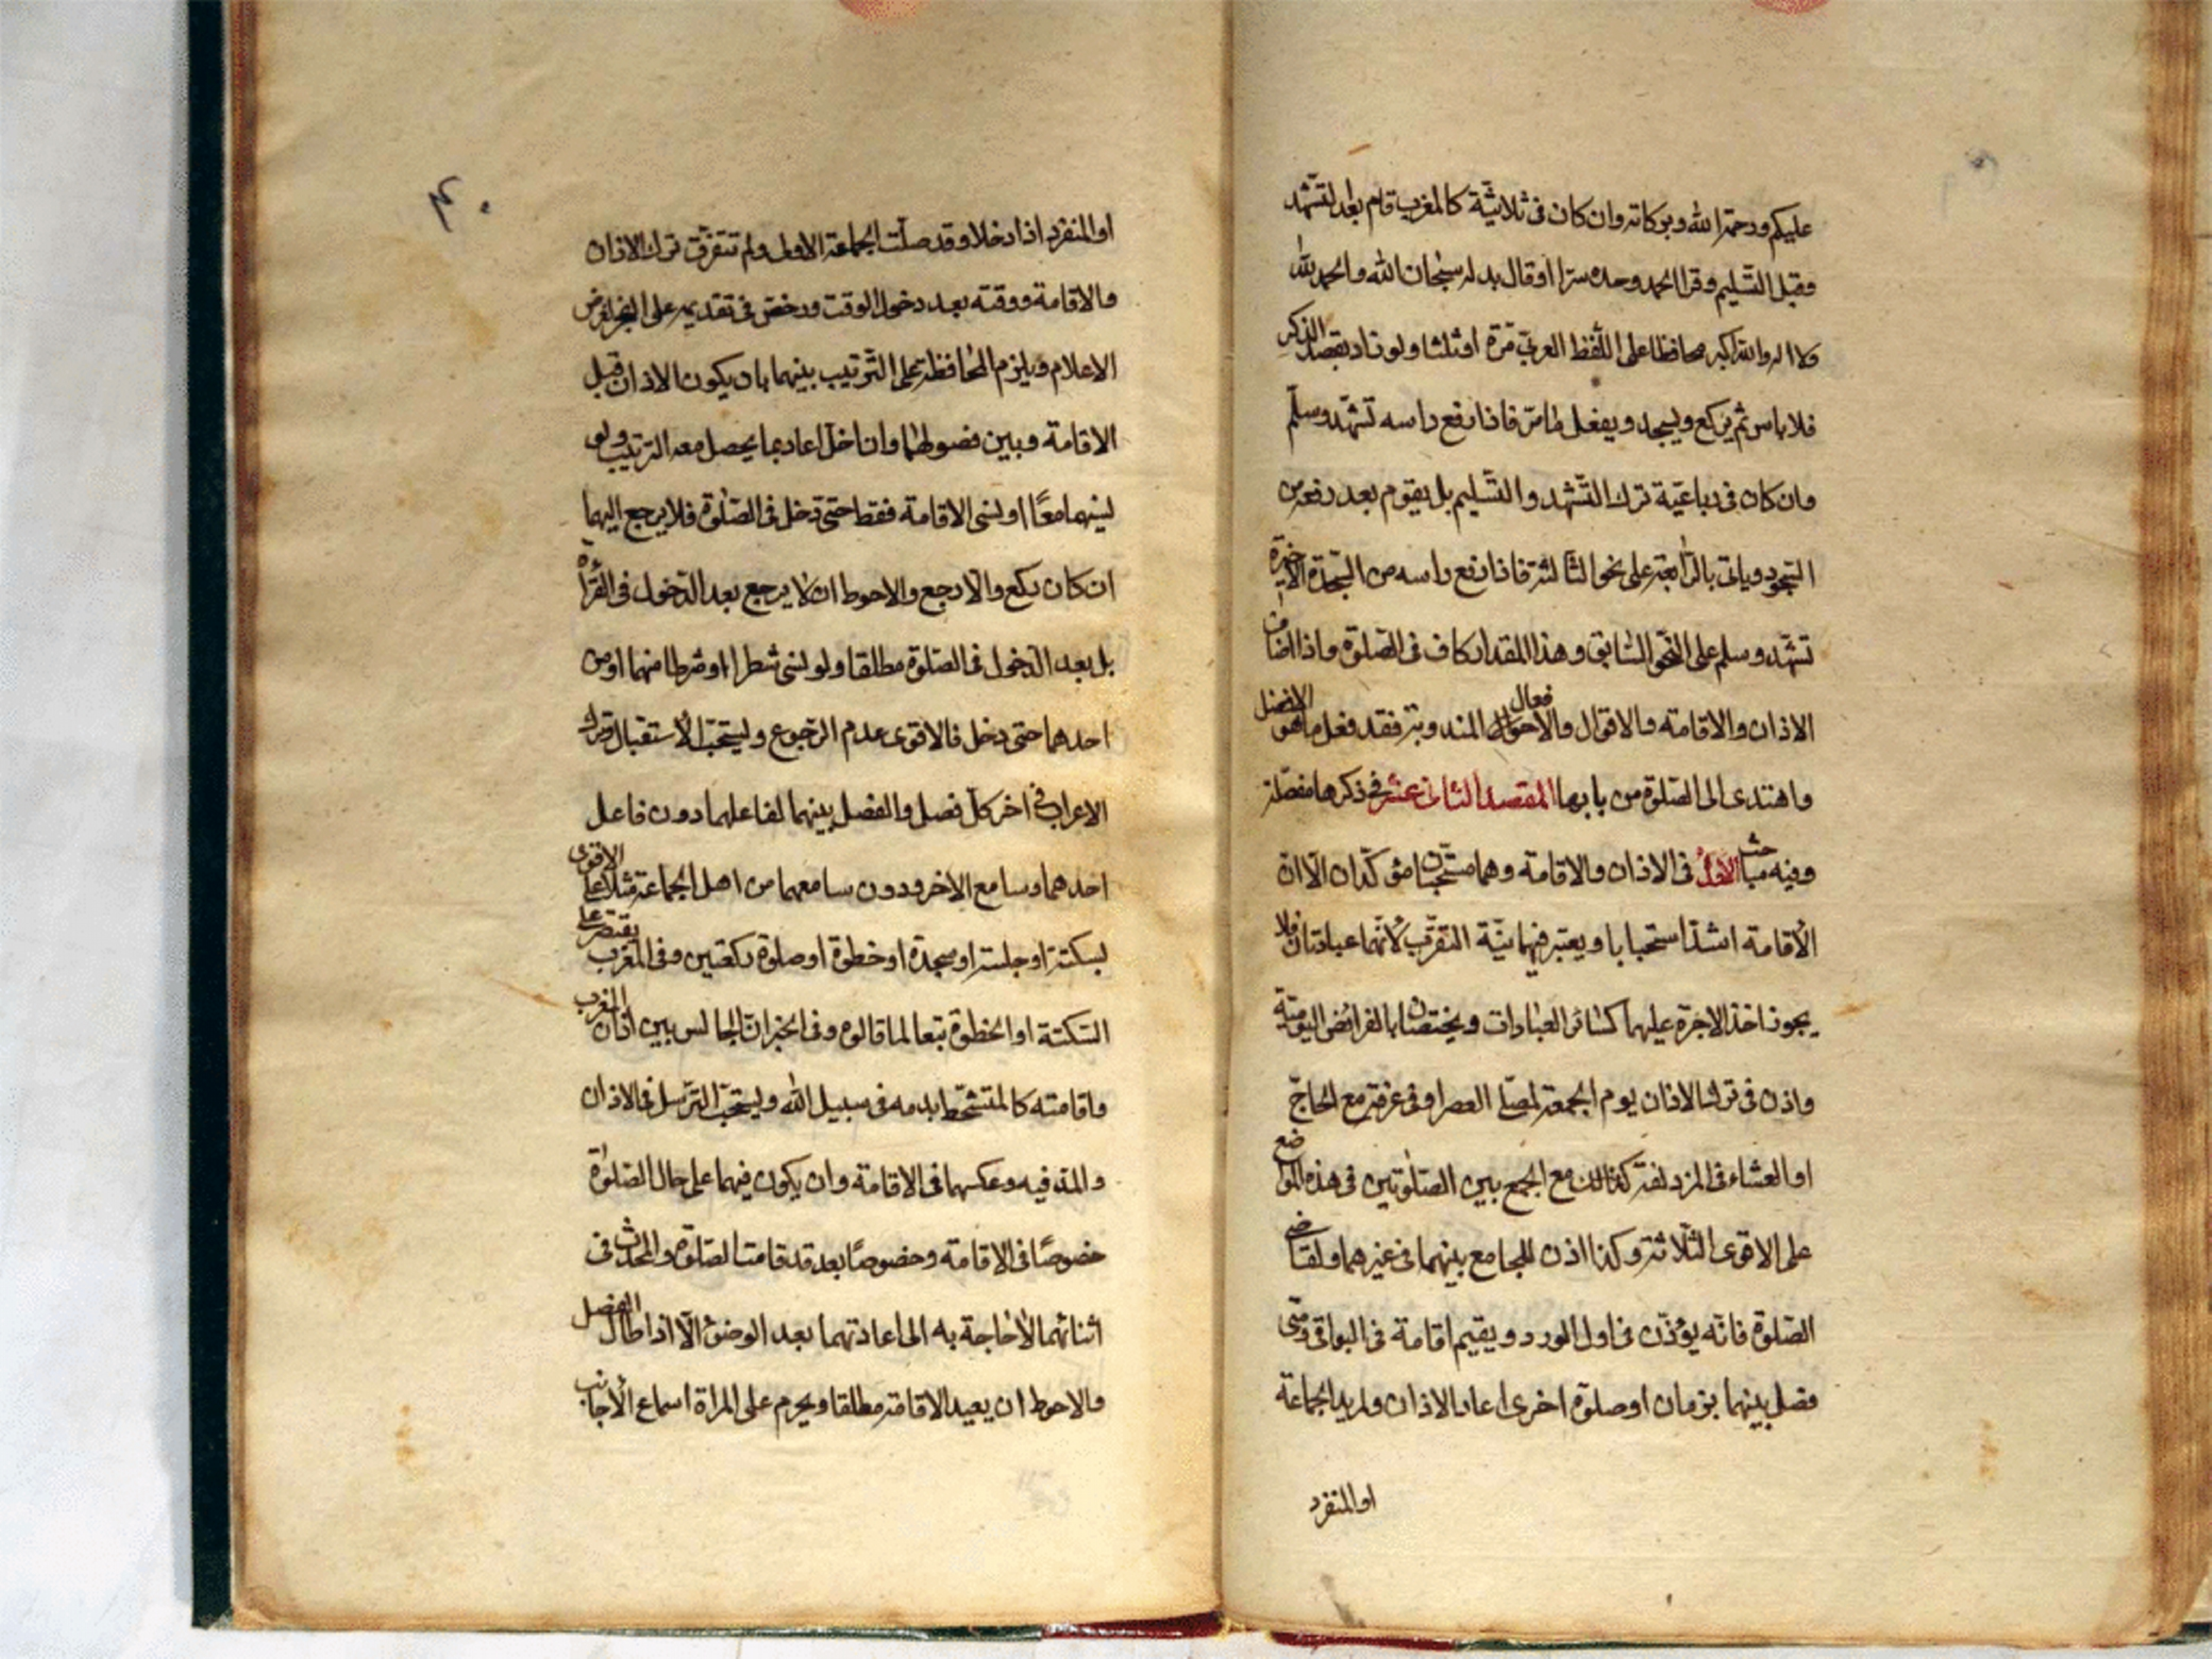 عليكم ورحمة الله وبركاته وان كان فى ثلاثيّة كالمغرب قام بعد التشهّد
وقبل التّسليم وقرا الحمد وحده سرّا او قال بدله سبحان الله والحمد لله
ولا اله والله اكبر محافظا على اللّفظ العربىّ مرّة او ثلثا ولو زاد بقصد الذكر
فلا باس ثم يركع ويسجد ويفعل ما مرّ فاذا رفع راسه تشهّد وسلّم
وان كان فى رباعيّة ترك التّشهد والتّسليم بل يقوم بعد رفعه من
السّجود وياتى بالرّابعة على نحو الثّالثة فاذا رفع راسه من السّجدة الاخيرة
تشهّد وسلم على النّحو السّابق وهذا المقدار كاف فى الصّلوة واذا اضاف
الاذان والاقامة والاقوال والافعال المندوبة فقد فعل ما هو الافضل
واهتدى الى الصّلوة من بابها المقصد الثانى عشر فى ذكرها مفصّلة
وفيه مباحث الاوّل فى الاذان والاقامة وهما مستحبّان مؤكّدان الّا انّ
الأقامة اشدّ استحبابا ويعتبر فيهما نيّة التقرّب لأنّهما عبادتان فلا
يجوز اخذ الاجرة عليهما كسائر العبادات ويختصّان بالفرائض اليوميّة
واذن فى ترك الاذان يوم الجمعة لمصلّى العصر او فى عرفة مع الحاجّ
او العشاء فى المزدلفة كذلك مع الجمع بين الصّلوتين فى هذه المواضع
على الاقوى الثّلاثة وكذا اذن للجامع بينهما فى غيرهما ولقاضى
الصّلوة فانّه يؤذّن فى اول الورد ويقيم اقامة فى البواقى ومتى
فصل بينهما بزمان او صلوة اخرى اعاد الاذان ولمريد الجماعة
او المنفرد
٤٠
او المنفرد اذا دخلا وقد صلّت الجماعة الاولى ولم تتفرّق ترك الاذان
والاقامة ووقته بعد دخول الوقت ورخص فى تقديمه على الفجر لغرض
الاعلام ويلزم المحافظة على التّرتيب بينهما بان يكون الاذان قبل
الاقامة وبين فصولهما وان اخلّ اعاد بما يحصل معه الترتيب ولو
نسيهما معًا او نسى الاقامة فقط حتى دخل فى الصّلوة فلا يرجع اليهما
ان كان ركع والّا رجع والاحوط ان لا يرجع بعد الدّخول فى القرأة
بل بعد الدّخول فى الصّلوة مطلقا ولو نسى شطرا او شرطا منهما او من
احدهما حتى دخل فالاقوى عدم الرّجوع ويستحبّ الأستقبال وترك
الاعراب فى اخر كلّ فصل والفصل بينهما لفاعلهما دون فاعل
احدهما وسامع الاخر ودون سامعهما من اهل الجماعة مثلا على الاقوى
بسكتة او جلسة او سجدة او خطوة او صلوة ركعتين وفى المغرب يقتصر على
السّكتة او الخطوة تبعا لما قالوه وفى الخبر انّ الجالس بين اذان المغرب
واقامته كالمتشحّط بدمه فى سبيل الله ويستحبّ التّرسّل فى الاذان
والمدّ فيه وعكسهما فى الاقامة وان يكون فيهما على حال الصّلوة
خصوصًا فى الاقامة وخصوصًا بعد قد قامت الصّلوة والمحدث فى
أثنائهما لا حاجة به الى اعادتهما بعد الوضوء الّا اذا طال الفصل
والاحوط ان يعيد الاقامة مطلقا ويحرم على المراة اسماع الأجانب